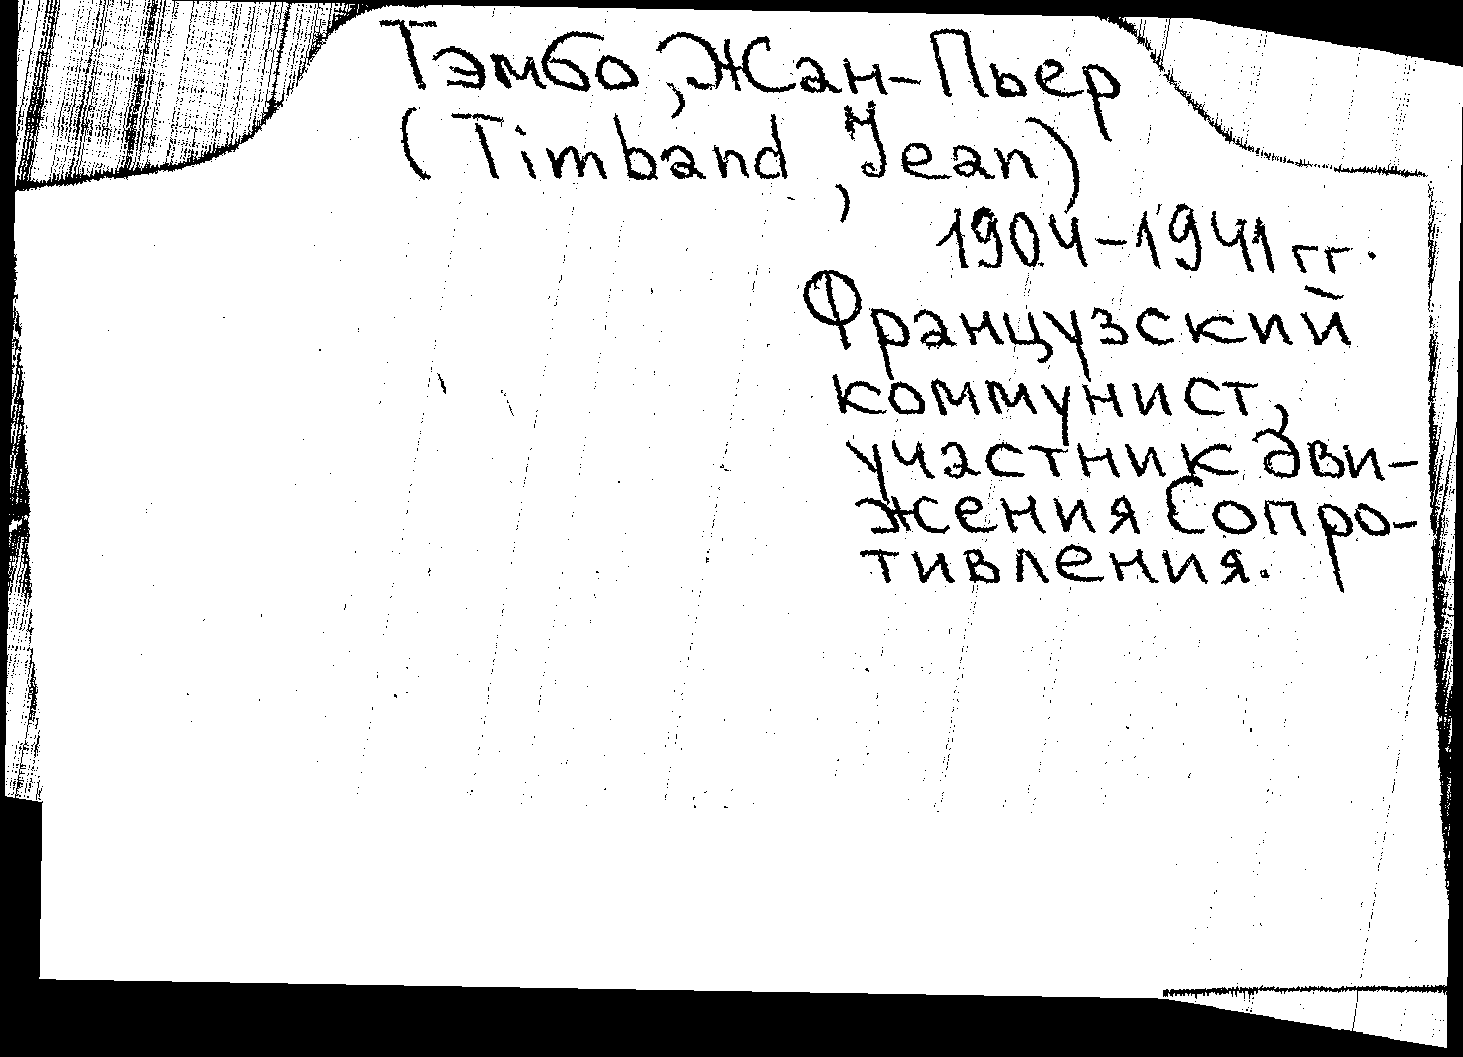 Тэмбо, Жан-Пьер
(Timband, Jean)
1904-1941 гг.
Французский
коммунист,
участник дви-
жения Сопро-
тивления.